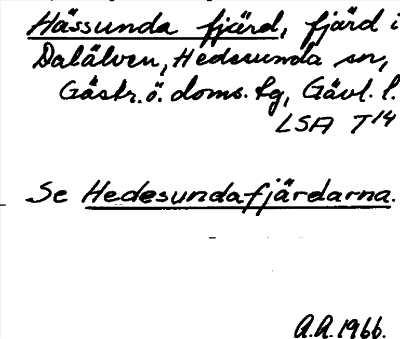 Hässunda fjärd, fjärd i
Dalälven, Hedesunda sn,
Gästr. ö. doms. tg, Gävl. l.
LSA T14
Se Hedesundafjärdarna.
A.A. 1966.